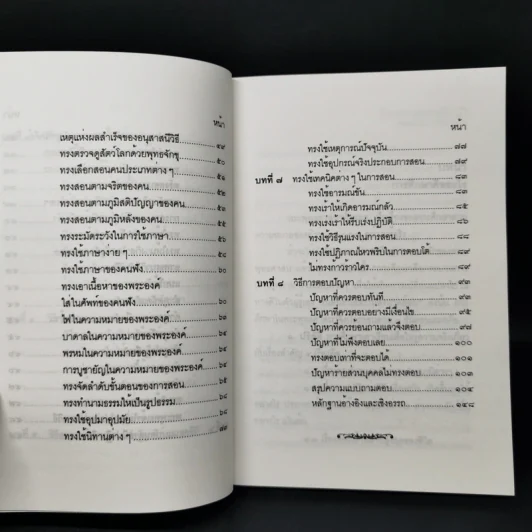 หน้า
เหตุแห่งผลสำเร็จของอนุสาสนีวิธี ๔๙
ทรงตรวจดูสัตว์โลกด้วยพุทธจักขุ ๕๐
ทรงเลือกสอนคนประเภทต่าง ๆ ๕๑
ทรงสอนตามจริตของคน ๕๒
ทรงสอนตามภูมิสติปัญญาของคน ๕๔
ทรงสอนตามภูมิหลังของคน
ทรงระมัดระวังในการใช้ภาษา ๕๖
ทรงใช้ภาษาง่าย ๆ
ทรงใช้ภาษาของคนฟัง ๖๐
ทรงเอาเนื้อหาของพระองค์
ใส่ในศัพท์ของคนฟัง ๖๐
ไฟในความหมายของพระองค์
บาดาลในความหมายของพระองค์ ๖๔
พรหมในความหมายของพระองค์ ๖๔
การบูชายัญในความหมายของพระองค์ ๖๔
ทรงจัดลำดับขั้นตอนของการสอน ๖๕
ทรงทำนามธรรมให้เป็นรูปธรรม
ทรงใช้อุปมาอุปมัย
ทรงใช้นิทานต่าง ๆ
หน้า
ทรงใช้เหตุการณ์ปัจจุบัน ๗๗
ทรงใช้อุปกรณ์จริงประกอบการสอน ๗๙
บทที่ ๗ ทรงใช้เทคนิคต่าง ๆ ในการสอน ๘๓
ทรงใช้อารมณ์ขัน ๘๓
ทรงเร้าให้เกิดอารมณ์กลัว ๘๕
ทรงเร่งเร้าให้รีบเร่งปฏิบัติ ๘๖
ทรงใช้วิธีรุนแรงในการสอน ๘๘
ทรงใช้ปฏิภาณไหวพริบในการตอบโต้ ๘๙
ไม่ทรงก้าวร้าวใคร ๘๙
บทที่ ๘ วิธีการตอบปัญหา ๙๓
ปัญหาที่ควรตอบทันที ๙๓
ปัญหาที่ควรตอบอย่างมีเงื่อนไข ๙๕
ปัญหาที่ควรย้อนถามแล้วจึงตอบ ๙๘
ปัญหาที่ไม่พึงตอบเลย ๑๐๐
ทรงตอบเท่าที่จะตอบได้ ๑๐๑
ปัญหาร้ายส่วนบุคคลไม่ทรงตอบ ๑๐๓
สรุปความแบบถามตอบ ๑๐๔
หลักฐานอ้างอิงและเชิงอรรถ ๑๔๘